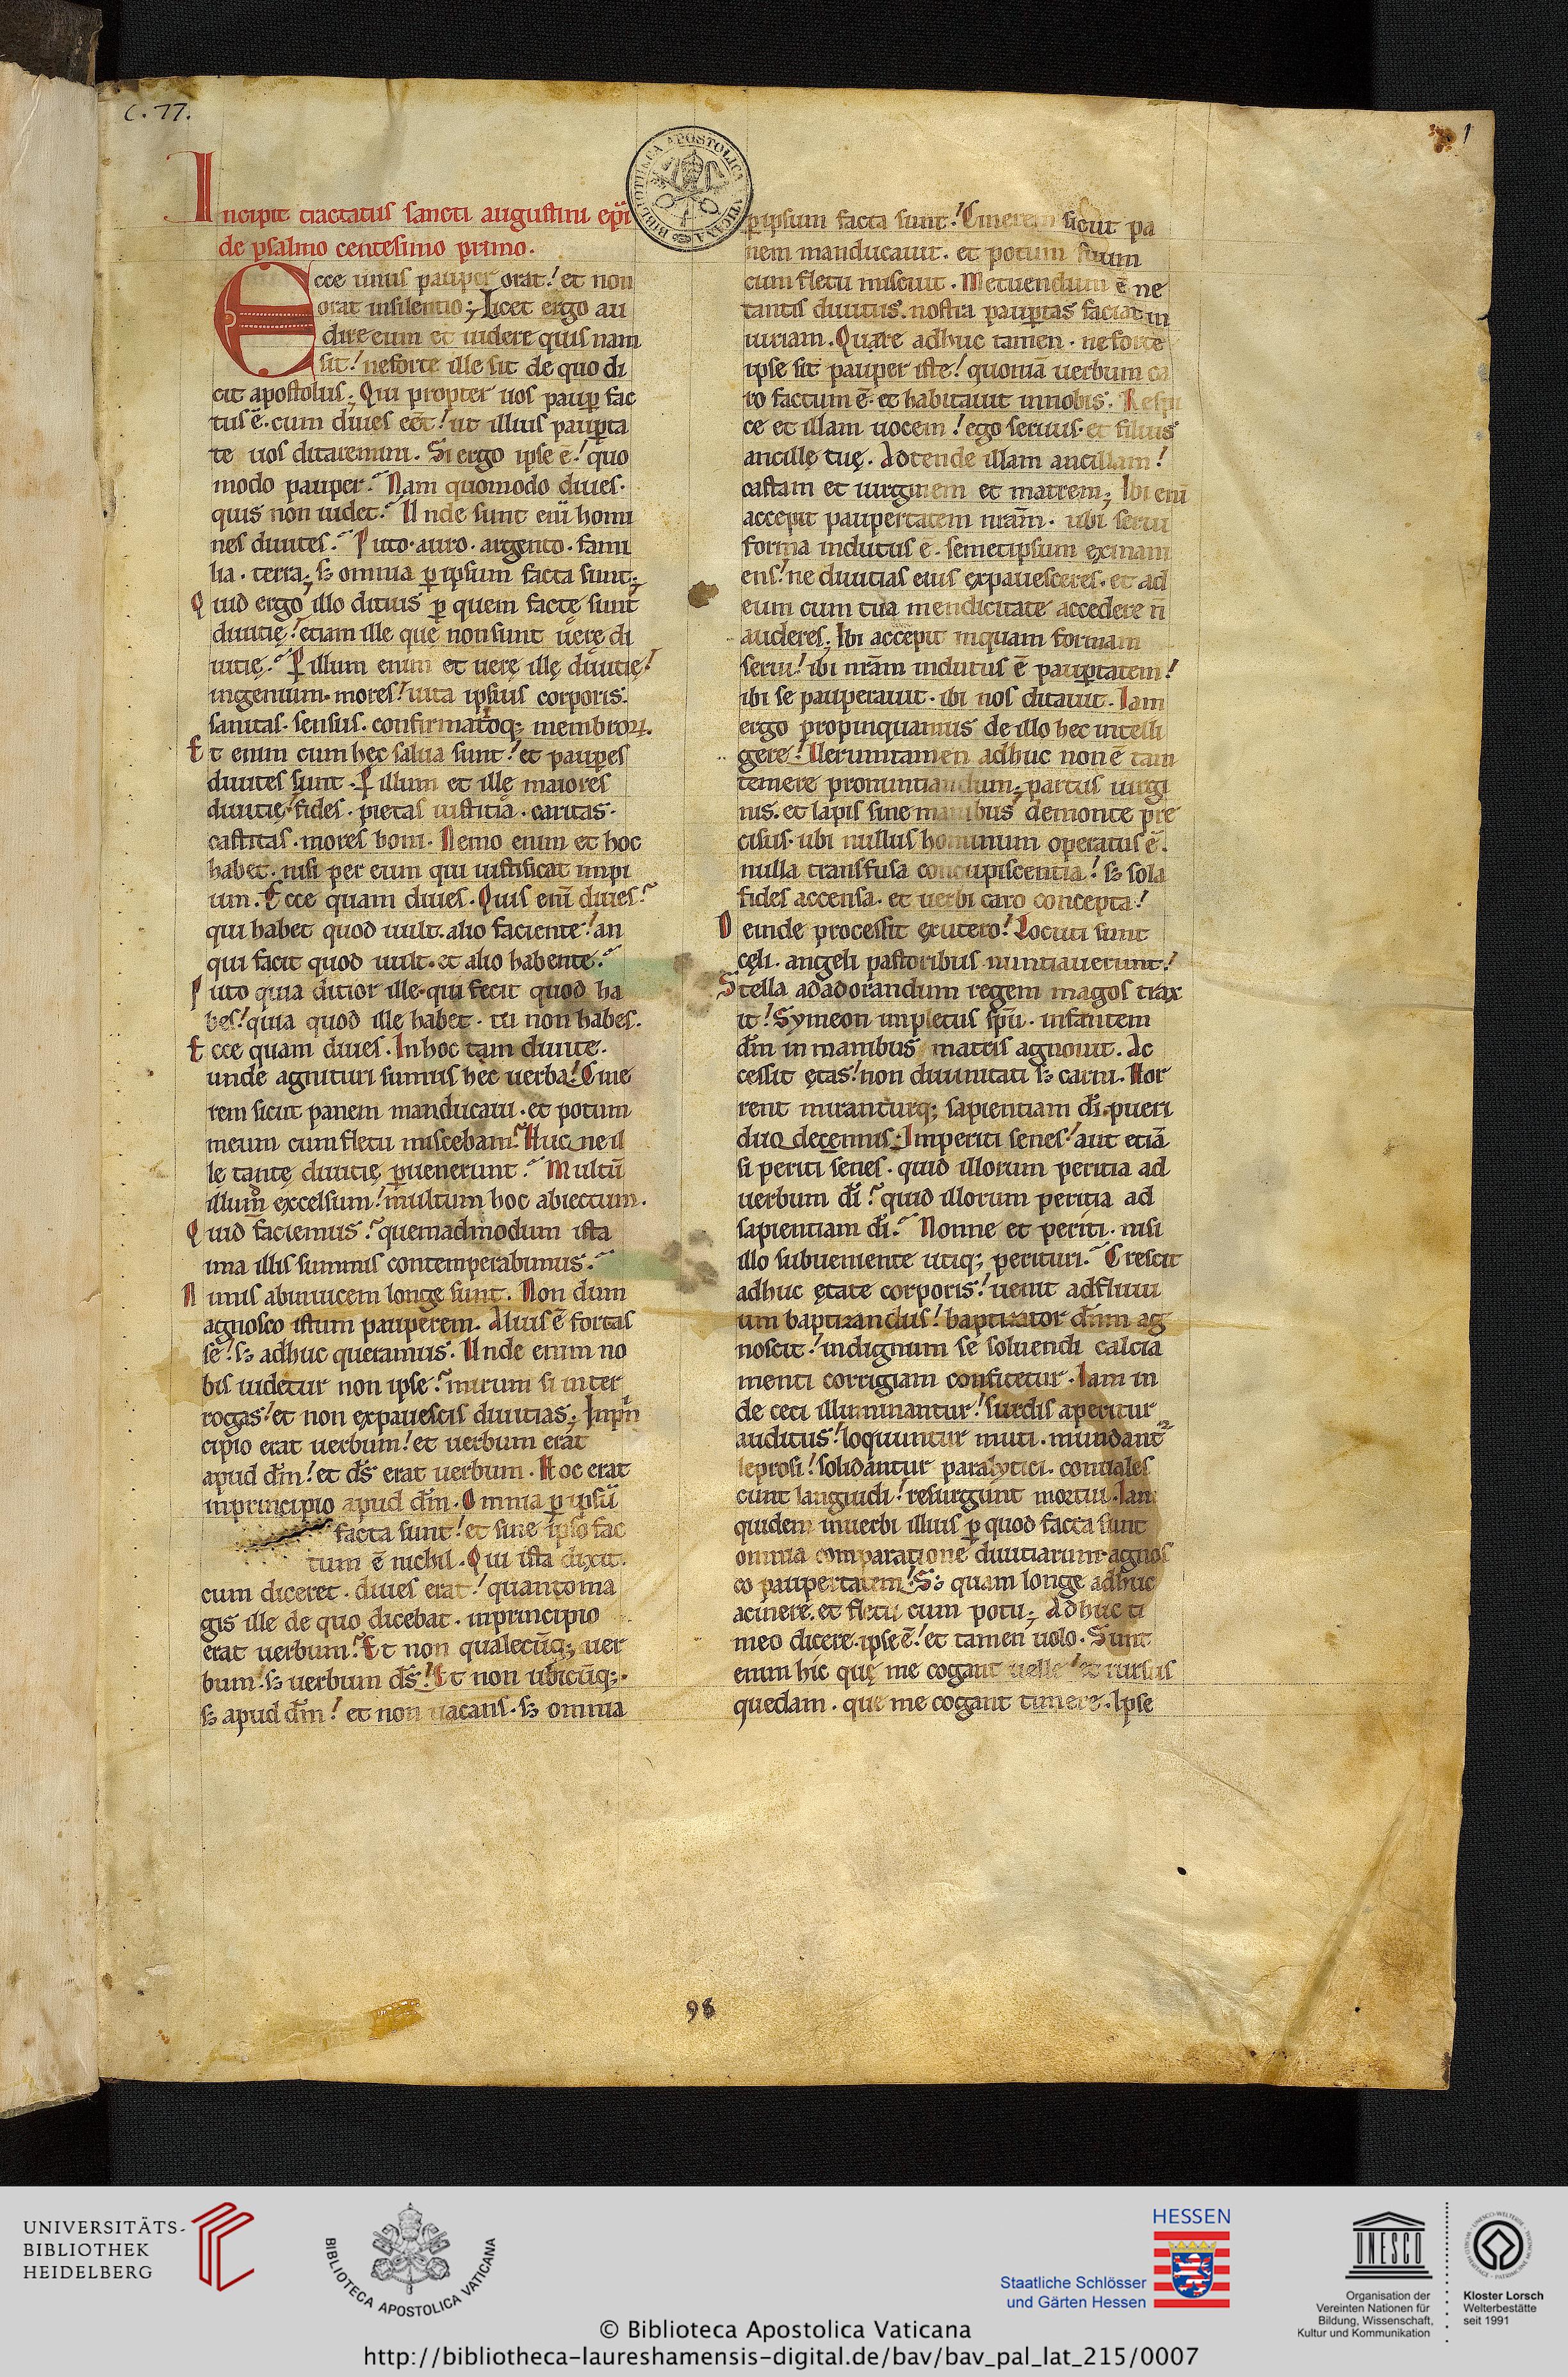 C. 77.
1
BIBLIOTHECA APOSTOLICA VATICANA
Incipit tractatus sancti augustini ep̄i
de psalmo centesimo primo.
Ecce unus pauper orat! et non
orat insilentio; Licet ergo au
dire eum et uidere quis nam
sit! neforte ille sit de quo di
cit apostolus; Qui propter uos paup̄ fac
tus ē. cum diues eēt! ut illius paup̄ta
te uos ditaremini. Si ergo ipse ē! quo
modo pauper? Nam quomodo diues.
quis non uidet? Unde sunt eni homi
nes diuites? Puto. auro. argento. fami
lia. terra; sꝫ omnia ꝑ ipsum facta sunt;
Quid ergo illo ditius ꝑ quem factę sunt
diuitię! etiam ille quę nonsunt uerę di
uitię? Ꝑ illum enim et uerę illę diuitię!
ingenium. mores! uita ipsius corporis.
sanitas. sensus. confirmatoqꝫ membroꝝ.
Et enim cum hec salua sunt! et paup̄es
diuites sunt. Ꝑ illum et illę maiores
diuitię! fides. pietas iustitia. caritas.
castitas. mores boni. Nemo enim et hoc
habet. nisi per eum qui iustificat impi
um. Ecce quam diues. Quis enī diues?
qui habet quod uult. alio faciente! an
qui facit quod uult. et alio habente?
Puto quia ditior ille. qui fecit quod ha
bes! quia quod ille habet. tu non habes.
Ecce quam diues. In hoc tam diuite.
unde agnituri sumus hec uerba! Cine
rem sicut panem manducaui. et potum
meum cum fletu miscebam? Huc ne il
lę tantę diuitię ꝑuenerunt? Multū
illum excelsum! multum hoc abiectum.
Quid faciemus? quemadmodum ista
ima illis summis contemperabimus?
Nimis abinuicem longe sunt. Non dum
agnosco istum pauperem. Alius ē fortas
se! sꝫ adhuc queramus. Unde enim no
bis uidetur non ipse? mirum si inter
rogas! et non expauescis diuitias; Inpn
cipio erat uerbum! et uerbum erat
apud dm̄! et ds̄ erat uerbum. Hoc erat
inprincipio apud dm̄. Omnia ꝑ ipsū
facta sunt! et sine ipso fac
tum ē nichil. Qui ista dixit.
cum diceret. diues erat! quantoma
gis ille de quo dicebat. inprincipio
erat uerbum? Et non qualecūqꝫ uer
bum! sꝫ uerbum ds̄! Et non ubicūqꝫ.
sꝫ apud dm̄! et non uacans. sꝫ omnia
ꝑ ipsum facta sunt! Cinerem sicut pa
nem manducauit. et potum suum
cum fletu miscuit. Metuendum ē ne
tantis diuitiis. nostra paup̄tas faciat in
iuriam. Quare adhuc tamen. ne forte
ipse sit pauper iste! quoniā uerbum ca
ro factum ē. et habitauit innobis. Respi
ce et illam uocem! ego seruus. et filius
ancillę tuę. Adtende illam ancillam!
castam et uirginem et matrem; Ibi enī
accepit paupertatem nr̄am. ubi serui
forma indutus ē. semetipsum exinani
ens! ne diuitias eius expauesceres. et ad
eum cum tua mendicitate accedere n̄
auderes; Ibi accepit inquam formam
serui! ibi nr̄am indutus ē paup̄tatem!
ibi se pauperauit. ibi nos ditauit. Iam
ergo propinquamus de illo hec intelli
gere! Ueruntamen adhuc non ē tam
temere pronuntiandum; partus uirgi
nis. et lapis sine manibus demonte pre
cisus. ubi nullus hominum operatus ē.
nulla transfusa concupiscentia! sꝫ sola
fides accensa. et uerbi caro concepta!
Deinde processit exutero! Locuti sunt
cęli. angeli pastoribus nuntiauerunt!
Stella adadorandum regem magos trax
it! Symeon impletus sp̄u. infantem
dm̄ in manibus matris agnouit. Ac
cessit ętas! non diuinitati sꝫ carni. Hor
rent miranturqꝫ sapientiam dī. pueri
duo decennis; Imperiti senes! aut etiā
si periti senes. quid illorum peritia ad
uerbum dī? quid illorum peritia ad
sapientiam dī? Nonne et periti. nisi
illo subueniente utiqꝫ perituri? Crescit
adhuc ętate corporis! uenit adfluui
um baptizandus! baptizator dn̄m ag
noscit! indignum se soluendi calcia
menti corrigiam confitetur. Iam in
de ceci illuminantur! surdis aperitur
auditus! loquuntur muti. mundant᷑
leprosi! solidantur paralytici. conuales
cunt languidi! resurgunt mortui. Iam
quidem inuerbi illius ꝑ quod facta sunt
omnia comparatione diuitiarum agnos
co paupertatem! Sꝫ quam longe adhuc
acinere. et fletu cum potu; Adhuc ti
meo dicere. ipse ē! et tamen uolo. Sunt
enim hic quę me cogant uelle! et rursus
quedam. que me cogant timere. Ipse
98
UNIVERSITÄTS-
BIBLIOTHEK
HEIDELBERG
BIBLIOTECA APOSTOLICA VATICANA
HESSEN
Staatliche Schlösser
und Gärten Hessen
UNESCO
Organisation der
Vereinten Nationen für
Bildung, Wissenschaft,
Kultur und Kommunikation
Kloster Lorsch
Welterbestätte
seit 1991
© Biblioteca Apostolica Vaticana
http://bibliotheca-laureshamensis-digital.de/bav/bav_pal_lat_215/0007